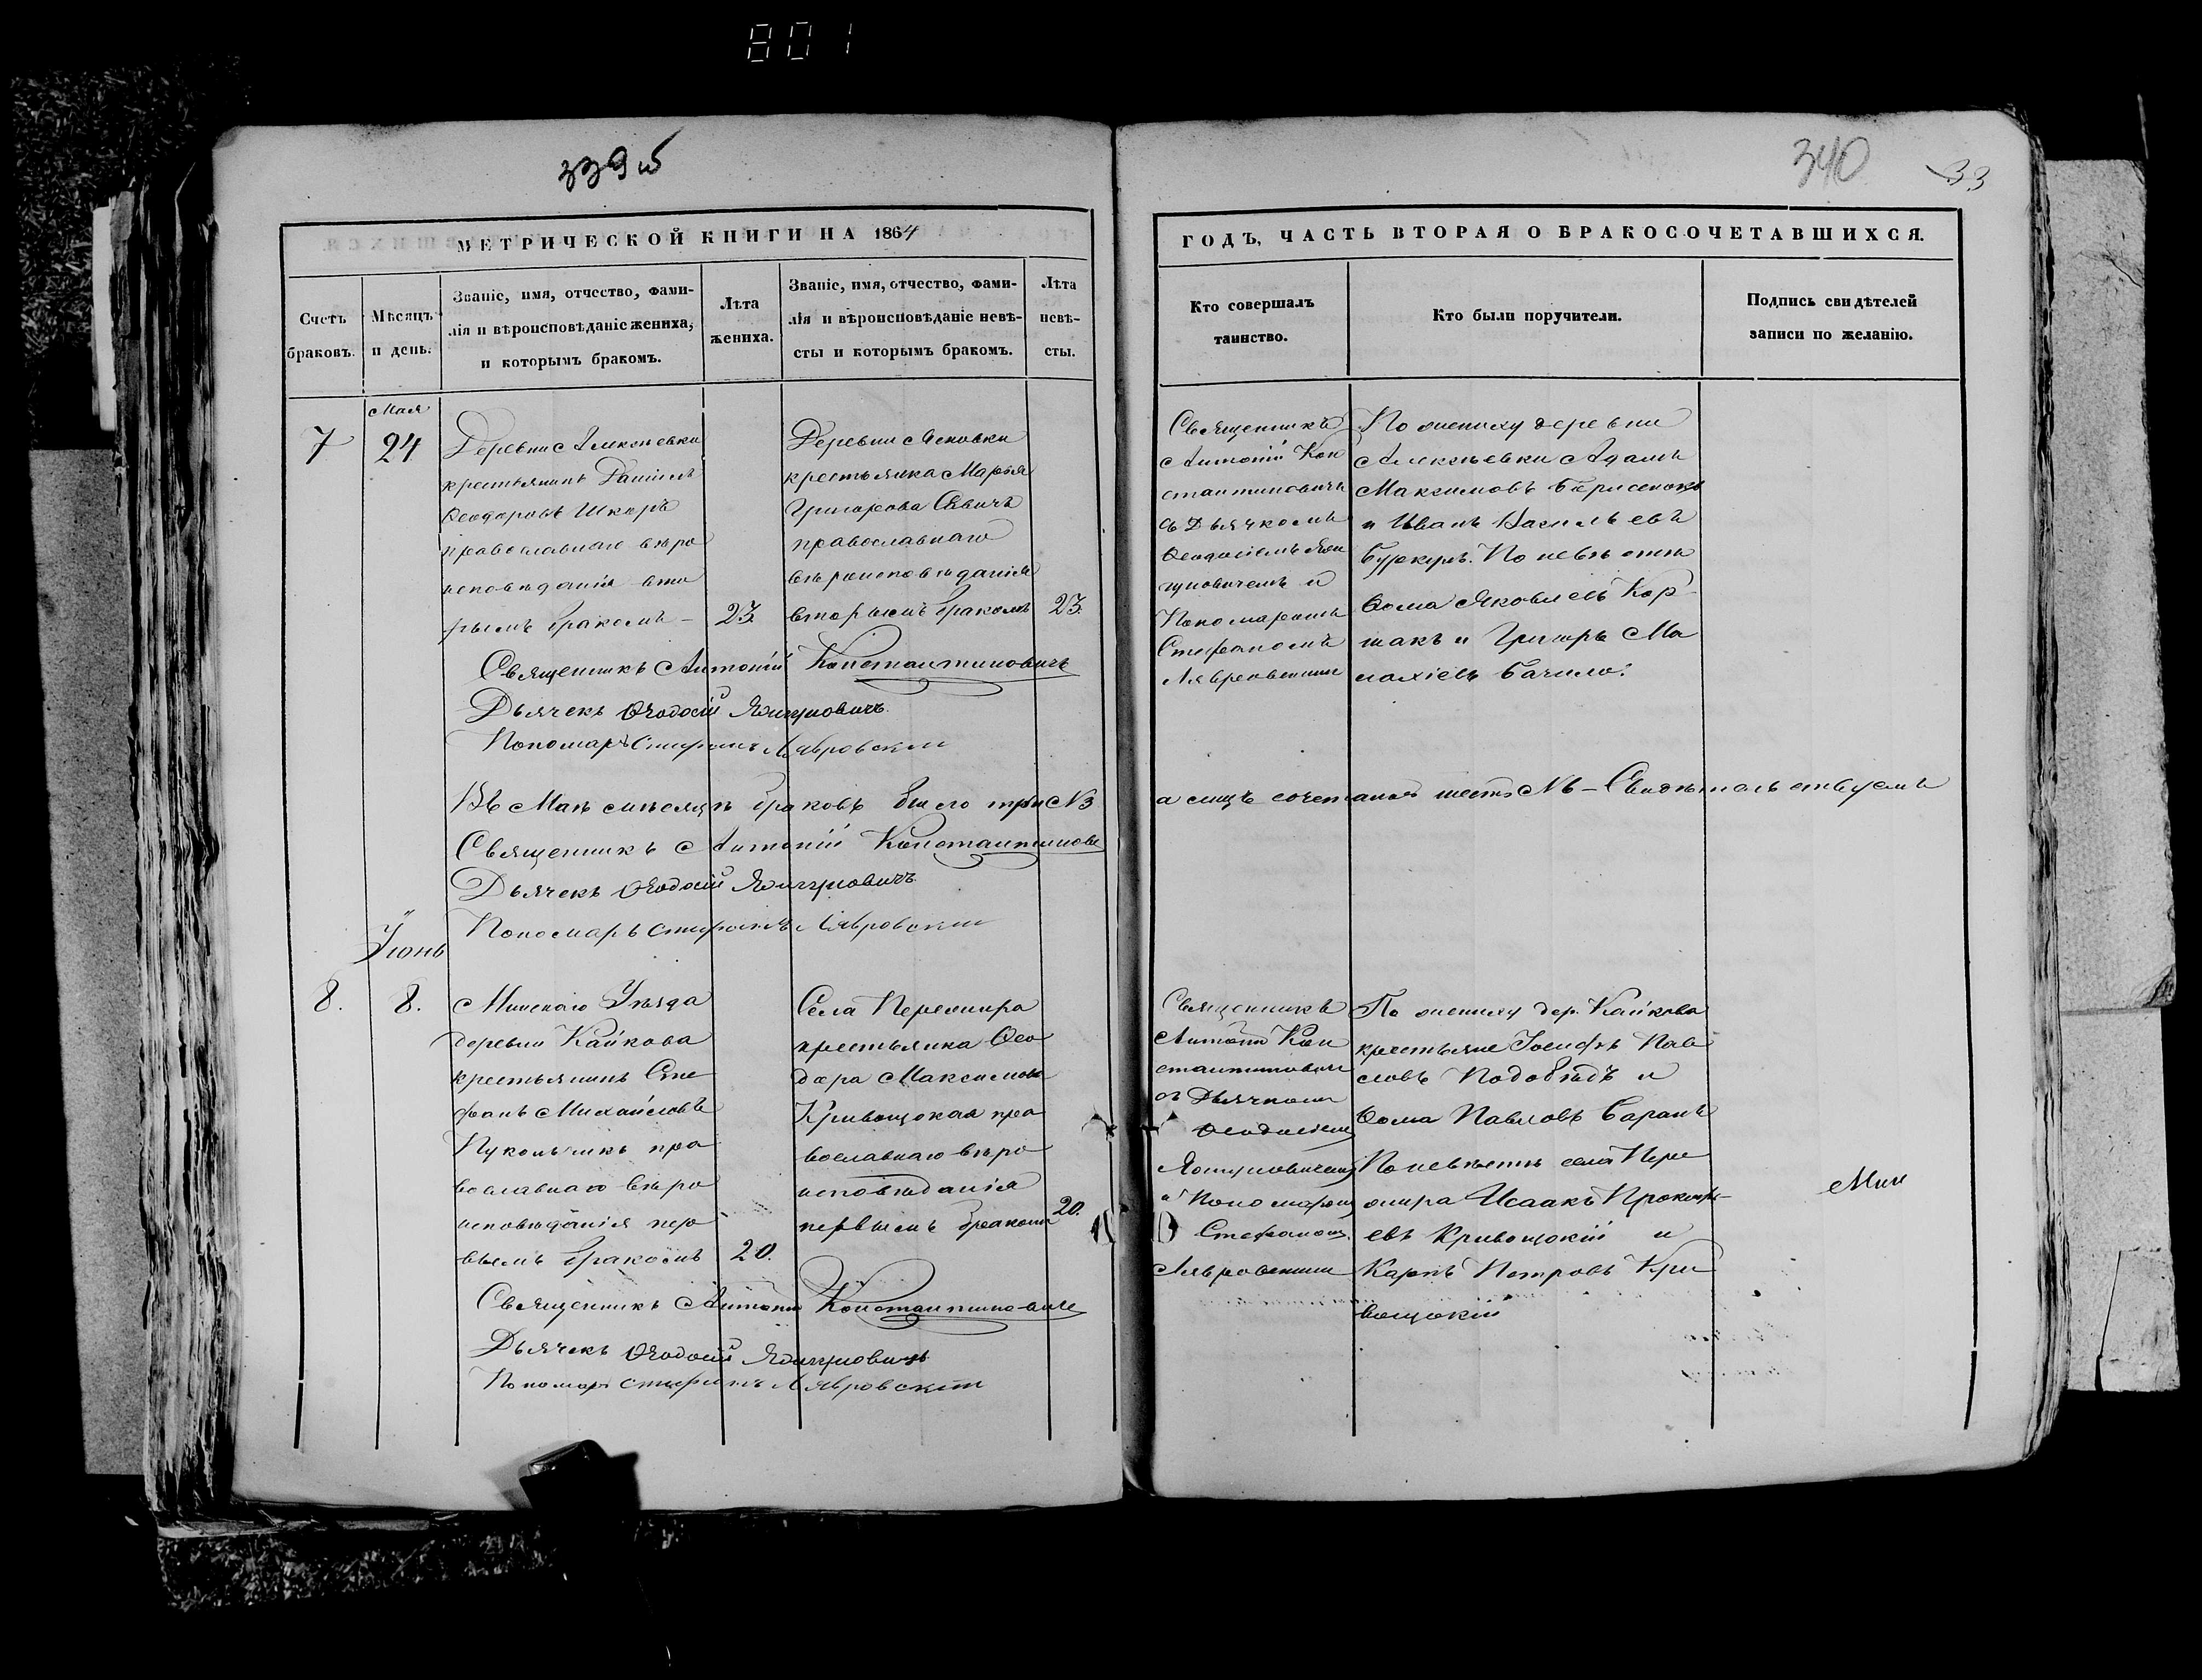 801
339 об
МЕТРИЧЕСКОЙ КНИГИ НА 1864
Счетъ
браковъ.
Мѣсяцъ
и день.
Званіе, имя, отчество, фами-
лія и вѣроисповѣданіе жениха,
и которымъ бракомъ.
Лѣта
жениха.
Званіе, имя, отчество, фами-
лія и вѣроисповѣданіе невѣ-
сты и которымъ бракомъ.
Лѣта
невѣ-
сты.
7
Мая
24
Деревни Алексѣевки
крестьянинъ Даніилъ
Ѳеодоровъ Шкоръ
православнаго вѣро
исповѣданія вто
рымъ бракомъ –
23.
Деревни
крестьянка Марья
Григорова Савичъ
православнаго
вѣроисповѣданія
вторымъ бракомъ
23.
Священникъ Антоній Константиновичъ
Дьячекъ Ѳеодосій
Пономарь Стефанъ Лявровскій
Въ Маѣ мѣсяцѣ браковъ было три №3
Священникъ Антоній Константинови
Дьячекъ Ѳеодосій
Пономарь Стефанъ Лявровскій
Іюнь
8.
8.
Минскаго Уѣзда
деревни Кайкова
крестьянинъ Сте
фанъ Михайловъ
Пукольникъ пра
вославнаго вѣро
исповѣданія пер
вымъ бракомъ
20.
Села Перемира
крестьянка Ѳео
дора Максимова
Кривощокая пра
вославнаго вѣро
исповѣданія
первымъ бракомъ
20.
Священникъ Антоній Константиновичъ
Дьячекъ Ѳеодосій
Пономарь Стефанъ Лявровскій
340
33
ГОДЪ, ЧАСТЬ ВТОРАЯ О БРАКОСОЧЕТАВШИХСЯ.
Кто совершалъ
таинство.
Кто были поручители.
Подпись свидѣтелей
записи по желанію.
Священникъ
Антоній Кон
стантиновичъ
съ Дьячкомъ
Ѳеодосіемъ
и
Пономаремъ
Стефаномъ
Лявровскимъ
По жениху деревни
Алексѣевки Адамъ
Максимовъ Борисенокъ
и Иванъ Васильевъ
По невѣстѣ
Ѳома Яковлевъ Кор-
шакъ и Григорь Ма
лахіевъ Бачило.
а лицъ сочетаной шесть №6 – Свидѣтельствуемъ
Священникъ
Антоній Кон
стантиновичъ
съ Дьячкомъ
Ѳеодосіемъ
и Пономаремъ
Стефаномъ
Лявровскимъ
По жениху дер. Кайкова
крестьяне Іосифъ Пав
ловъ Подобѣдъ и
Ѳома Павловъ Баранъ
По невѣстѣ села Пере
мира Исаакъ Прокофь-
евъ Кривощокій и
Карпъ Петровъ Кри
вощокій
Мин